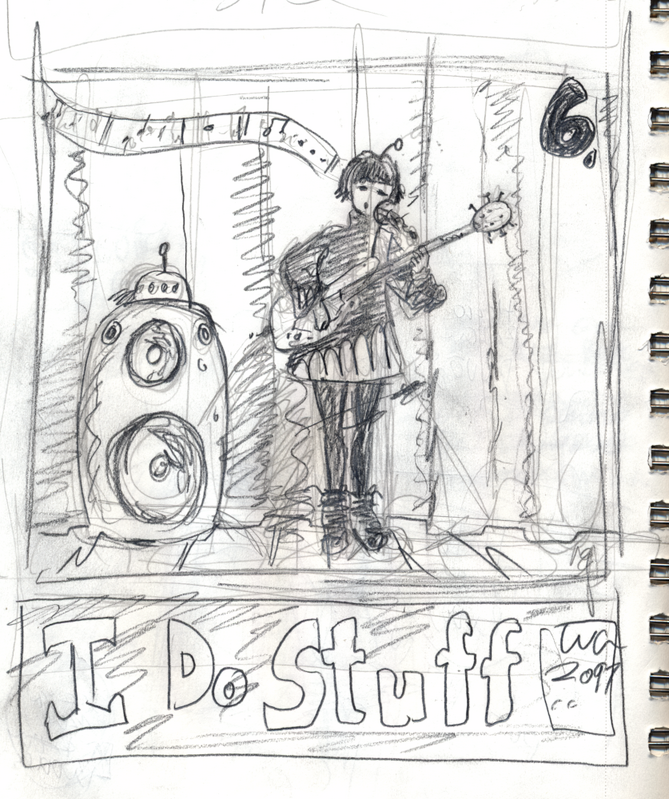 6.
I Do Stuff
2097